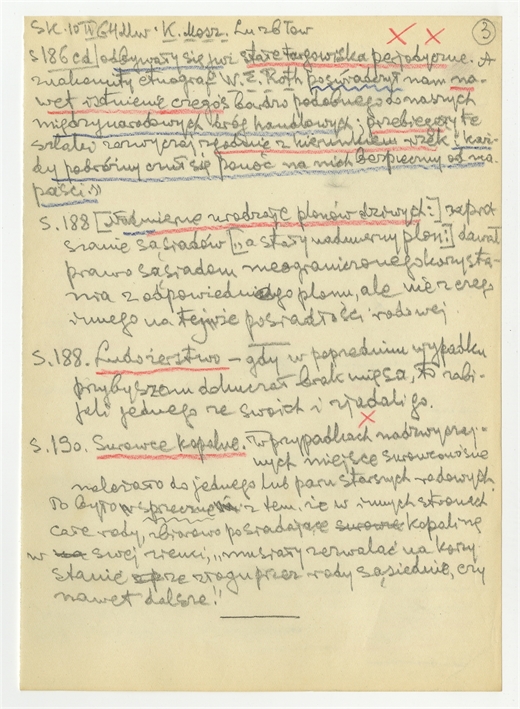 SK. 10 II 64 K. Mosz. Lu zbTow
3
s 186 cd/odbywały się już stałe targowiska periodyczne. A
znakomity etnograf W. E. Roth poświadczył nam na-
wet istnienie czegoś bardzo podobnego do naszych
międzynarodowych dróg handlowych; przebiegały te
szlaki zazwyczaj zgodnie z kierunkiem rzek i każ-
dy podróżny czuł się ponoć na nich bezpieczny od na-
paści."
s. 188 [Nadmierne urodzaje plonów dziwych:] zapra
szanie sąsiadów [") a stały nadmierny plon:] dawał
prawo sąsiadom nieograniczonego korzysta-
nia z odpowiedniego plonu, ale nie z czego
innego na tejże posiadłości rodowej.
s. 188. Ludożerstwo – gdy w poprzednim wypadku
przybyszom dokuczał brak mięsa, to zabi-
jali jednego ze swoich i zjadali go.
s. 190. Surowce kopalne. W przypadkach nadzwyczaj-
nych miejsce surowconośne
należało do jednego lub paru starszych rodowych.
To było sprzeczne z tem, że w innych stronach
całe rody, zbiorowo posiadające kopalinę
w swej ziemi, „musiały zezwalać na korzy
stanie z złogu przez rody sąsiednie, czy
nawet dalsze!"